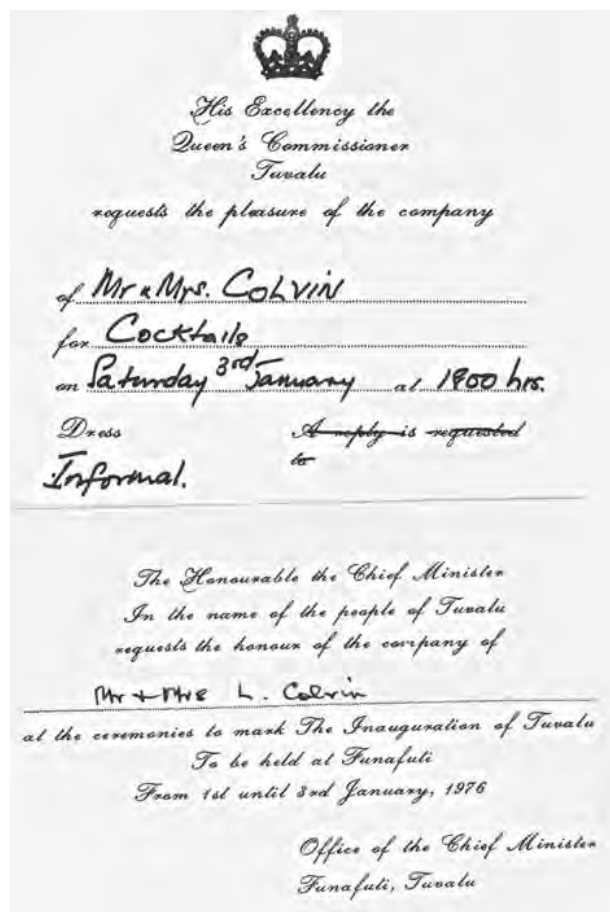 His Excellency the
Queen's Commissioner
Tuvalu
requests the pleasure of the company
of Mr & Mrs. COLVIN
for Cocktails
on Saturday 3rd January at 1800 hrs.
Dress A reply is requested
to
Informal.
The Honourable the Chief Minister
In the name of the people of Tuvalu
requests the honour of the company of
Mr + Mrs L. Colvin
at the ceremonies to mark The Inauguration of Tuvalu
To be held at Funafuti
From 1st until 3rd January, 1976
Office of the Chief Minister
Funafuti, Tuvalu